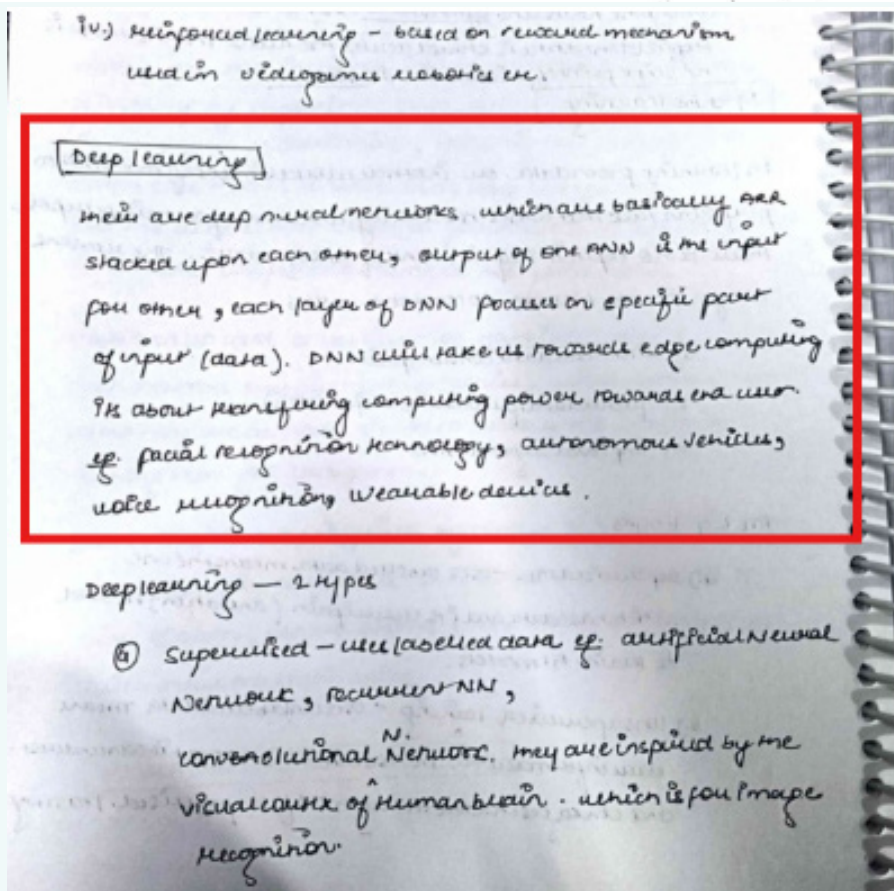 iv.) reinforced learning – based on reward mechanism
used in videogames robotics etc.
Deep learning
their are deep nural networks which are basically ANN
stacked upon each other, output of one ANN is the input
for other, each layer of DNN focuses on specific part
of input (data). DNN will take us towards edge computing
its about transfering computing power towards end user.
eg. facial recognition technology, autonomous vehicles,
voice recognition, wearable devices.
Deep learning — 2 types
Supervised – uses labelled data eg. artificial Neural
Network, recurrent NN,
N.
convolutional Network. they are inspired by the
visual cortex of Human brain. which is for image
recognition.